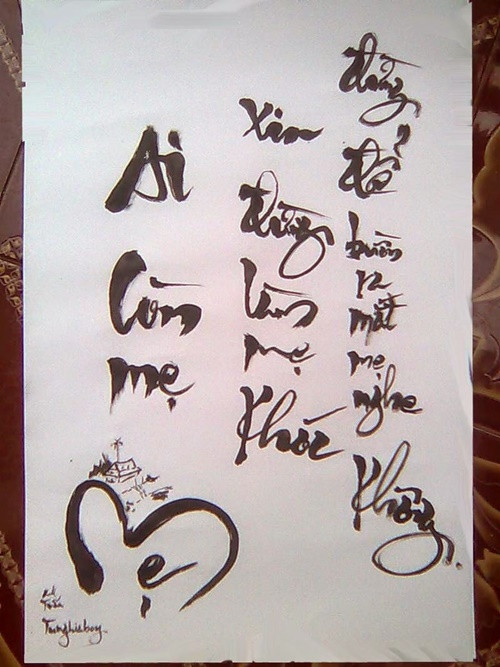 Ai
Còn
mẹ
Xin
đừng
làm
mẹ
Khóc
đừng
để
buồn
lên
mắt
mẹ
nghe
Không
Mẹ